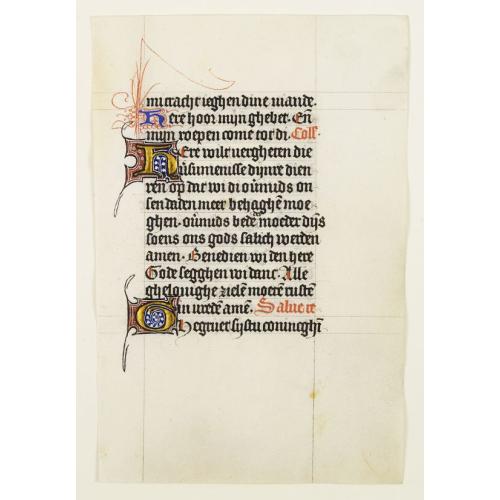 mi cracht ieghen dine viande.
Here hoor mijn ghebet. Eñ
mijn roepen come tot di. Coll'
Here wilt vergheten die
dijnre dien
ren op dat wi di ouͫids on
sen daden meer behaghē moe
ghen. ouͫids bede der moeder dijs
soens ons gods salich werden
amen. Benedien wi den here
Gode segghen wi danc. Alle
ghelouighe zielē moetē rustē
in vrede amē. Salue re
Ghegruet sijstu coninghī